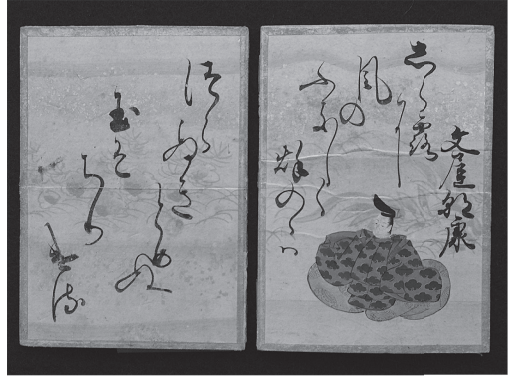 文屋朝康
しら露に
風の
ふきしく
秋のゝは
つらぬき
とめぬ
玉そ
ちり
ける